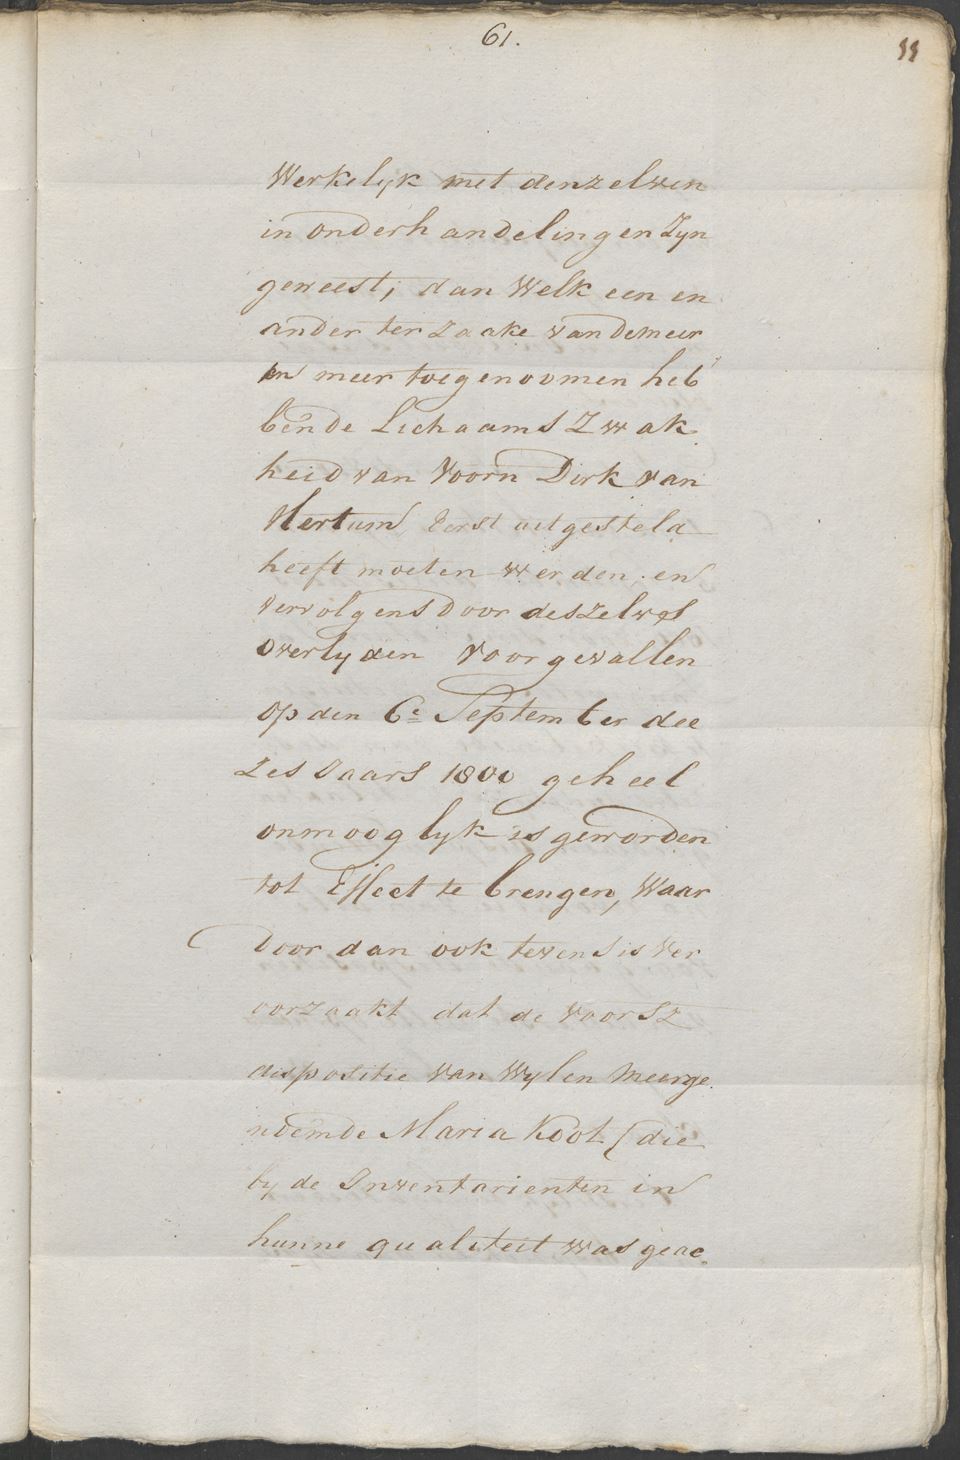 61.
33
Werkelyk met denzelven
in onderhandelingen Zyn
geweest, dan Welk een en
ander ter zaake van de meer
en meer toegenoomen heb
bende Lichaams Zwak
heid van Voorn Dirk van
Hertum Eerst uitgesteld
heeft moeten werden, en
vervolgens door deszelvs
overlyden Voorgevallen
op den 6e September dee
zes Jaars 1800 geheel
onmooglyk is geworden
tot Effect te brengen, Waar
door dan ook tevens is Ver
oorzaakt dat de voorsz
dispositie van Wylen Meerge
noemde Maria Koot (die
by de Inventarienten in
hunne qualiteit was geac